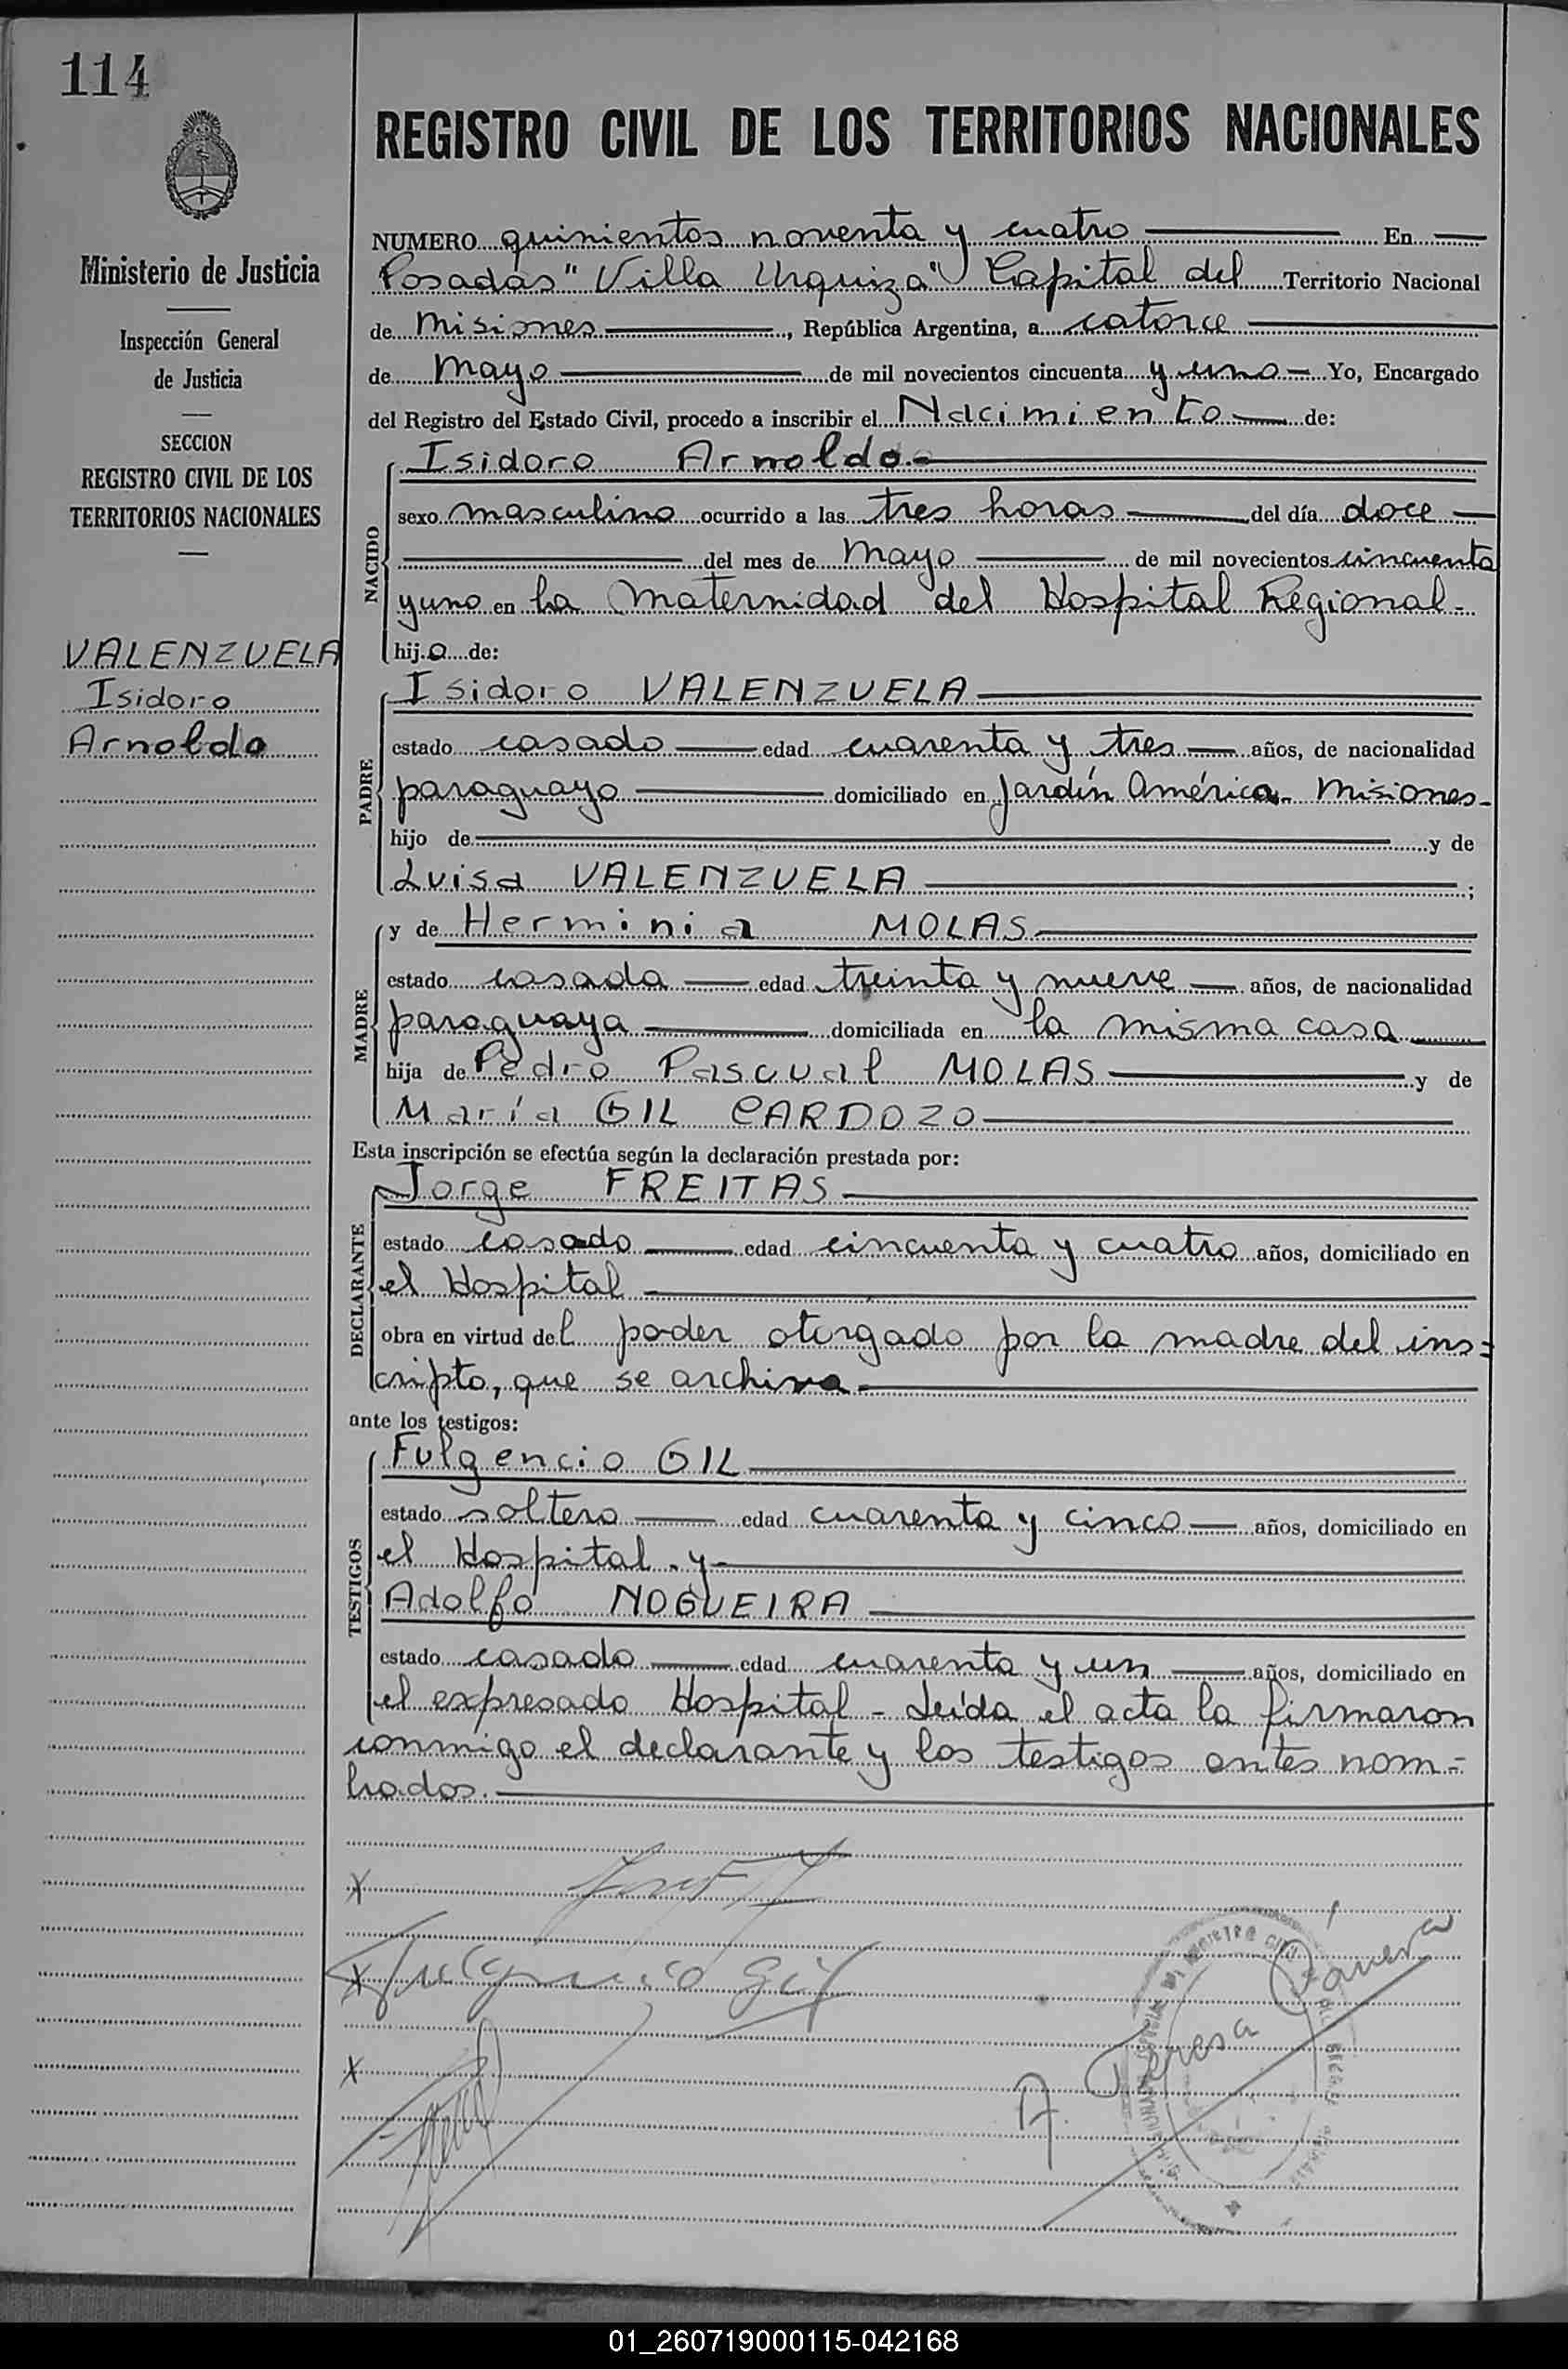 114
Ministerio de Justicia
Inspección General
de Justicia
SECCION
REGISTRO CIVIL DE LOS
TERRITORIOS NACIONALES
VALENZUELA
Isidoro
Arnoldo
REGISTRO CIVIL DE LOS TERRITORIOS NACIONALES
NUMERO quinientos noventa y cuatro En
Posadas "Villa Urquiza" Capital del Territorio Nacional
de Misiones, República Argentina, a catorce
de Mayo de mil novecientos cincuenta y uno Yo, Encargado
del Registro del Estado Civil, procedo a inscribir el Nacimiento de:
NACIDO
Isidoro Arnoldo.-
sexo masculino ocurrido a las tres horas del día doce
del mes de Mayo de mil novecientos cincuenta
y uno en la Maternidad del Hospital Regional.-
hijo de:
PADRE
Isidoro VALENZUELA
estado casado edad cuarenta y tres años, de nacionalidad
paraguayo domiciliado en Jardín América - Misiones -
hijo de y de
Luisa VALENZUELA ;
MADRE
y de Herminia MOLAS
estado casada edad treinta y nueve años, de nacionalidad
paraguaya domiciliada en la misma casa
hija de Pedro Pascual MOLAS y de
María GIL CARDOZO
Esta inscripción se efectúa según la declaración prestada por:
DECLARANTE
Jorge FREITAS
estado casado edad cincuenta y cuatro años, domiciliado en
el Hospital
obra en virtud del poder otorgado por la madre del ins=
cripto, que se archiva.-
ante los testigos:
TESTIGOS
Fulgencio GIL
estado soltero edad cuarenta y cinco años, domiciliado en
el Hospital. y
Adolfo NOGUEIRA
estado casado edad cuarenta y un años, domiciliado en
el expresado Hospital - Leída el acta la firmaron
conmigo el declarante y los testigos antes nom=
brados.
X
X Fulgencio Gil
X
A. Teresa
01_260719000115-042168